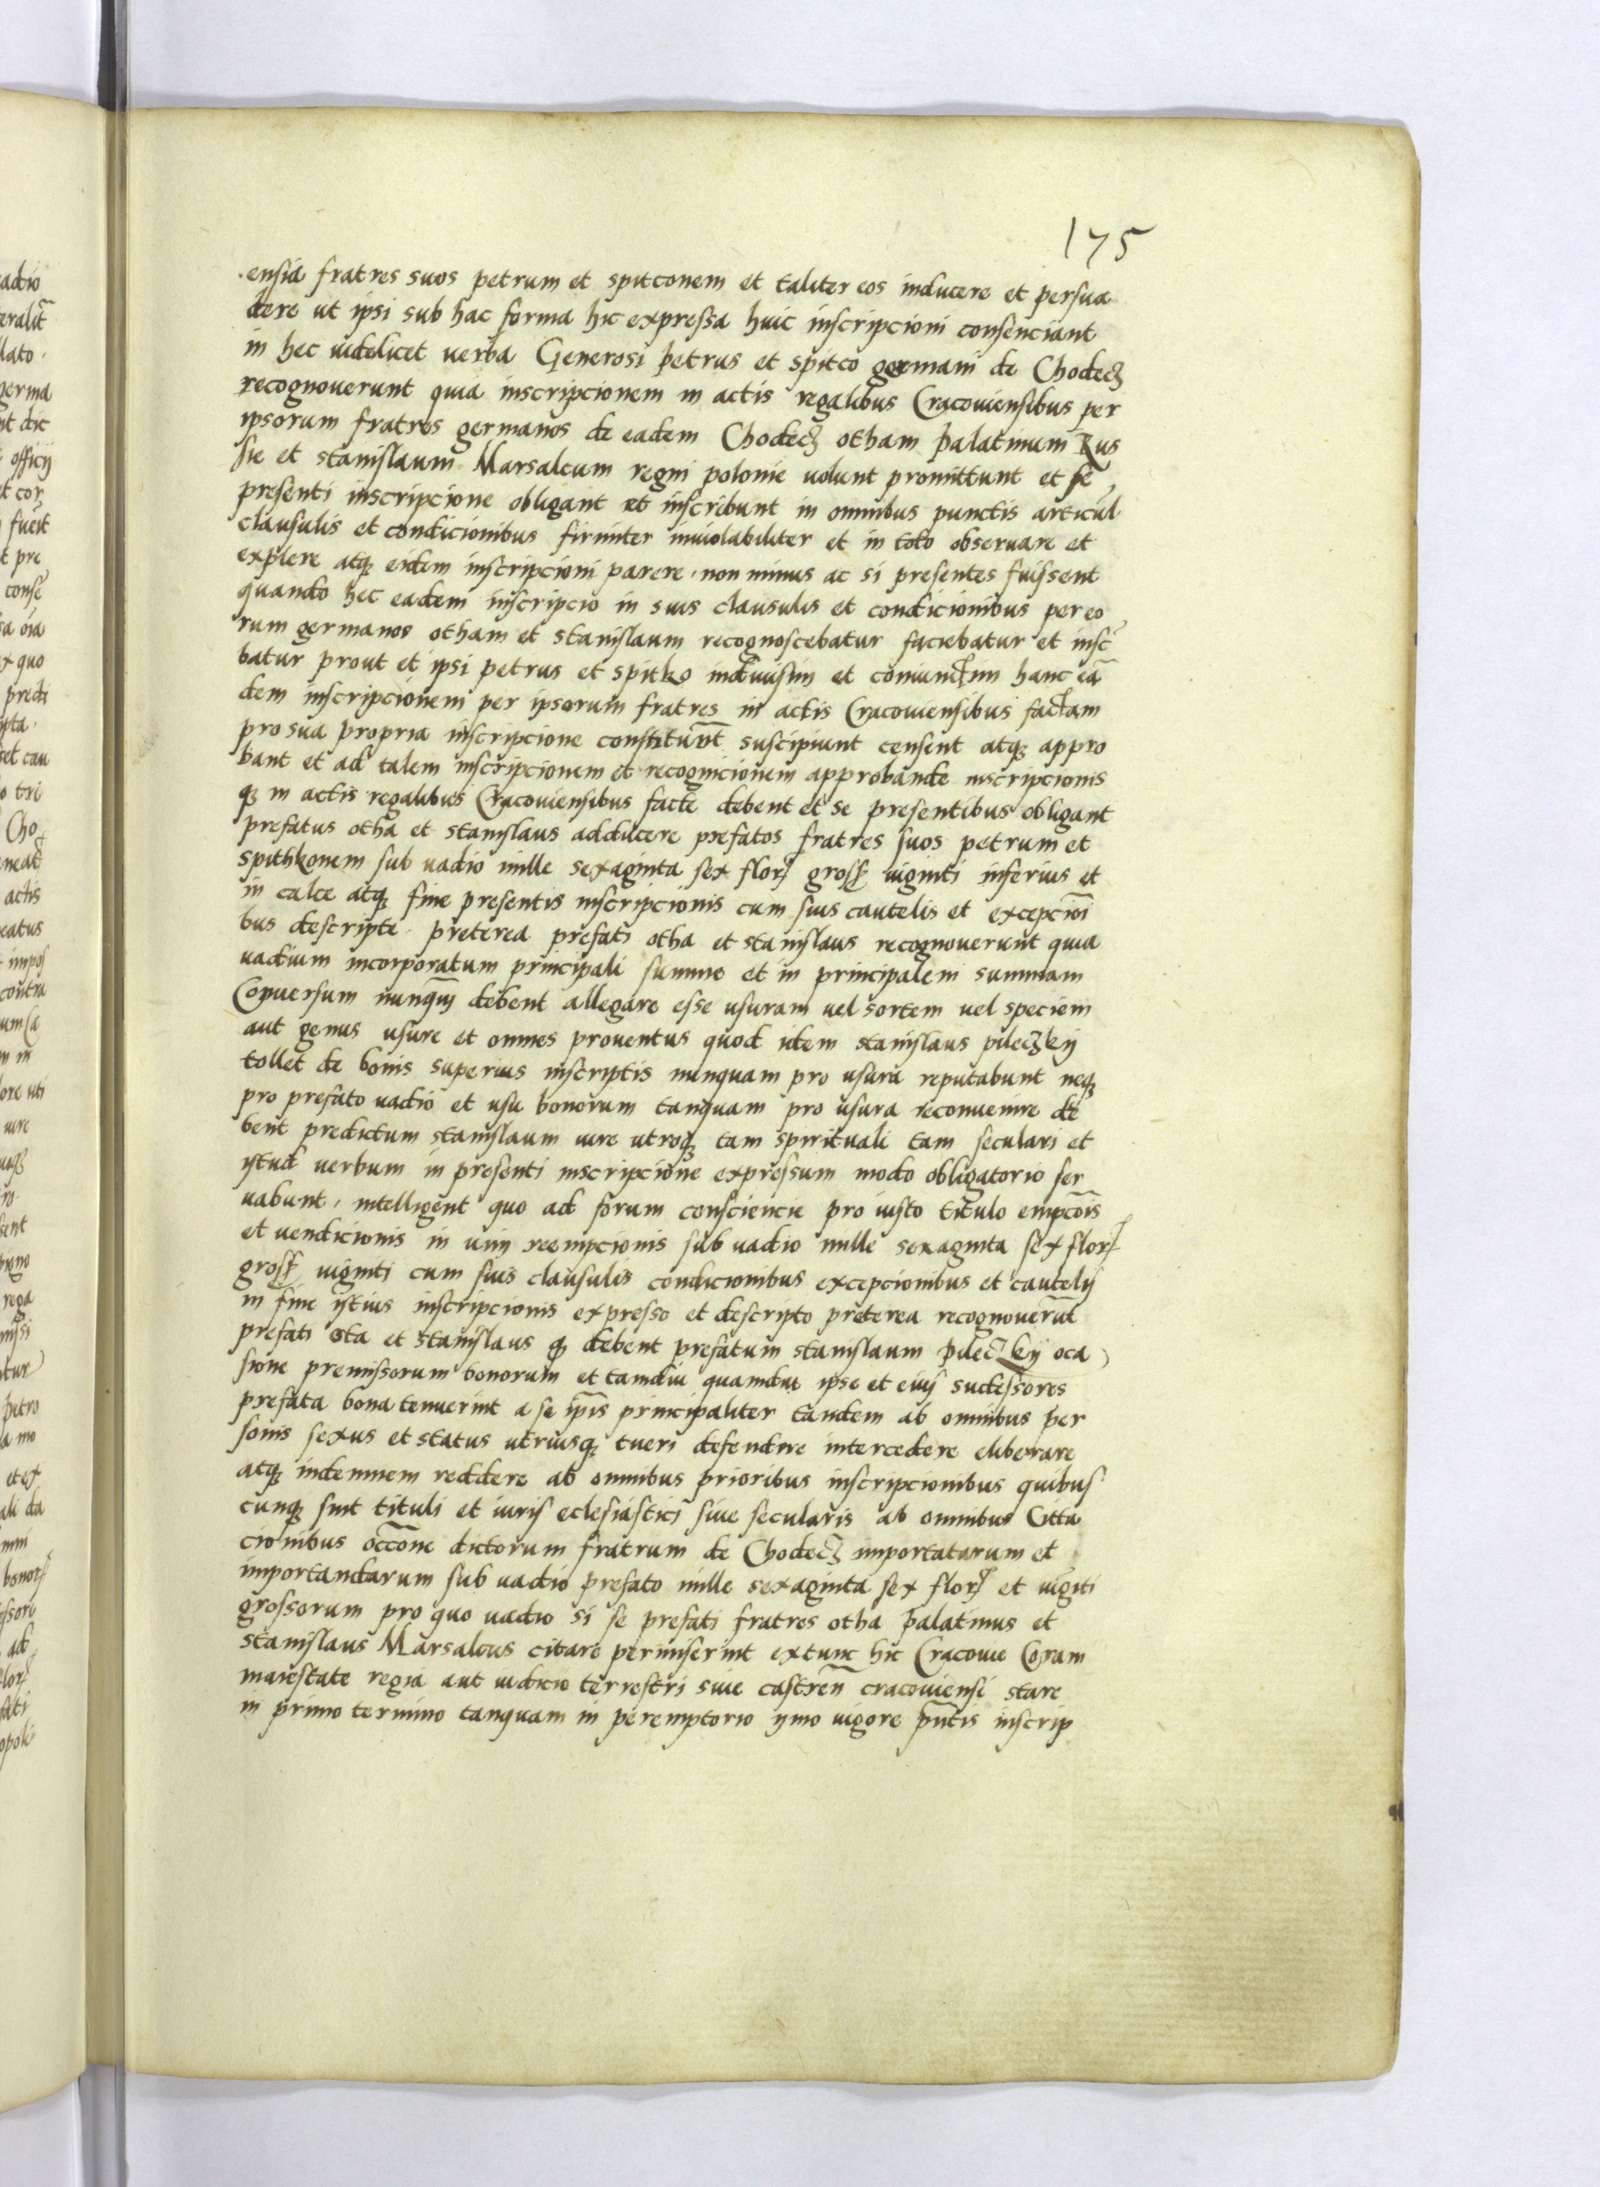 175
ensia fratres suos petrum et spitconem et taliter eos inducere et persua
dere ut ipsi sub hac forma hic expressa huic inscripcioni consenciant
in hec uidelicet uerba Generosi petrus et spitco germani de Chodecz
recognouerunt quia inscripcionem in actis regalibus Cracouiensibus per
ipsorum fratres germanos de eadem Chodecz otham palatinum Rus
sie et stanislaum Marsalcum regni polonie uolunt promittunt et se
presenti inscripcione obligant et inscribunt in omnibus punctis articul
clausulis et condicionibus firmiter inuiolabiliter et in toto obseruare et
explere atq; eidem inscripcioni parere · non minus ac si presentes fuissent
quando hec eadem inscripcio in suis clausulis et condicionibus per eo
rum germanos otham et stanislaum recognoscebatur faciebatur et inscr̄
batur prout et ipsi petrus et spitko indiuisim et coniunctim hanc eā
dem inscripcionem per ipsorum fratres in actis Cracouiensibus factam
pro sua propria inscripcione constituūt suscipiunt censent atq; appro
bant et ad talem inscripcionem et recognicionem approbande inscripcionis
q; in actis regalibus Cracouiensibus facte debent et se presentibus obligant
prefatus otha et stanislaus adducere prefatos fratres suos petrum et
spithkonem sub uadio mille sexaginta sex flor gross uiginti inferius et
in calce atq; fine presentis inscripcionis cum suis cautelis et excepcioī
bus descripte · preterea prefati otha et stanislaus recognouerunt quia
uadium incorporatum principali summe et in principalem summam
Conuersum nunq̄ debent allegare esse usuram uel sortem uel speciem
aut genus usure et omnes prouentus quod idem stanislaus pileczkij
tollet de bonis superius inscriptis nunquam pro usura reputabunt neq;
pro prefato uadio et usu bonorum tanquam pro usura reconuenire de
bent predictum stanislaum iure utroq; tam spirituali tam seculari et
istud uerbum in presenti inscripcione expressum modo obligatorio ser
uabunt · intelligent quo ad forum consciencie pro iusto titulo empcōis
et uendicionis in uim reempcionis sub uadio mille sexaginta sex flor
gross uiginti cum suis clausulis condicionibus excepcionibus et cautelij
in fine istius inscripcionis expresso et descripto preterea recognouerūt
prefati ota et stanislaus q; debent prefatum stanislaum pileczkij oca
sione premissorum bonorum et tamdiu quamdiu ipse et eius successores
prefata bona tenuerint a se ip̄is principaliter tandem ab omnibus per
sonis sexus et status utriusq; tueri defendere intercedere eliberare
atq; indemnem reddere ab omnibus prioribus inscripcionibus quibus
cunq; sint tituli et iuris eclesiastici siue secularis ab omnibus Citta
cionibus occōne dictorum fratrum de Chodecz importatarum et
importandarum sub uadio prefato mille sexaginta sex flor et uigīti
grossorum pro quo uadio si se prefati fratres otha palatinus et
stanislaus Marsalcus citare permiserint extunc hic Cracouie Coram
maiestate regia aut iudicio terrestri siue castren̄ cracouiensi stare
in primo termino tanquam in peremptorio ymo uigore pn̄tis inscrip